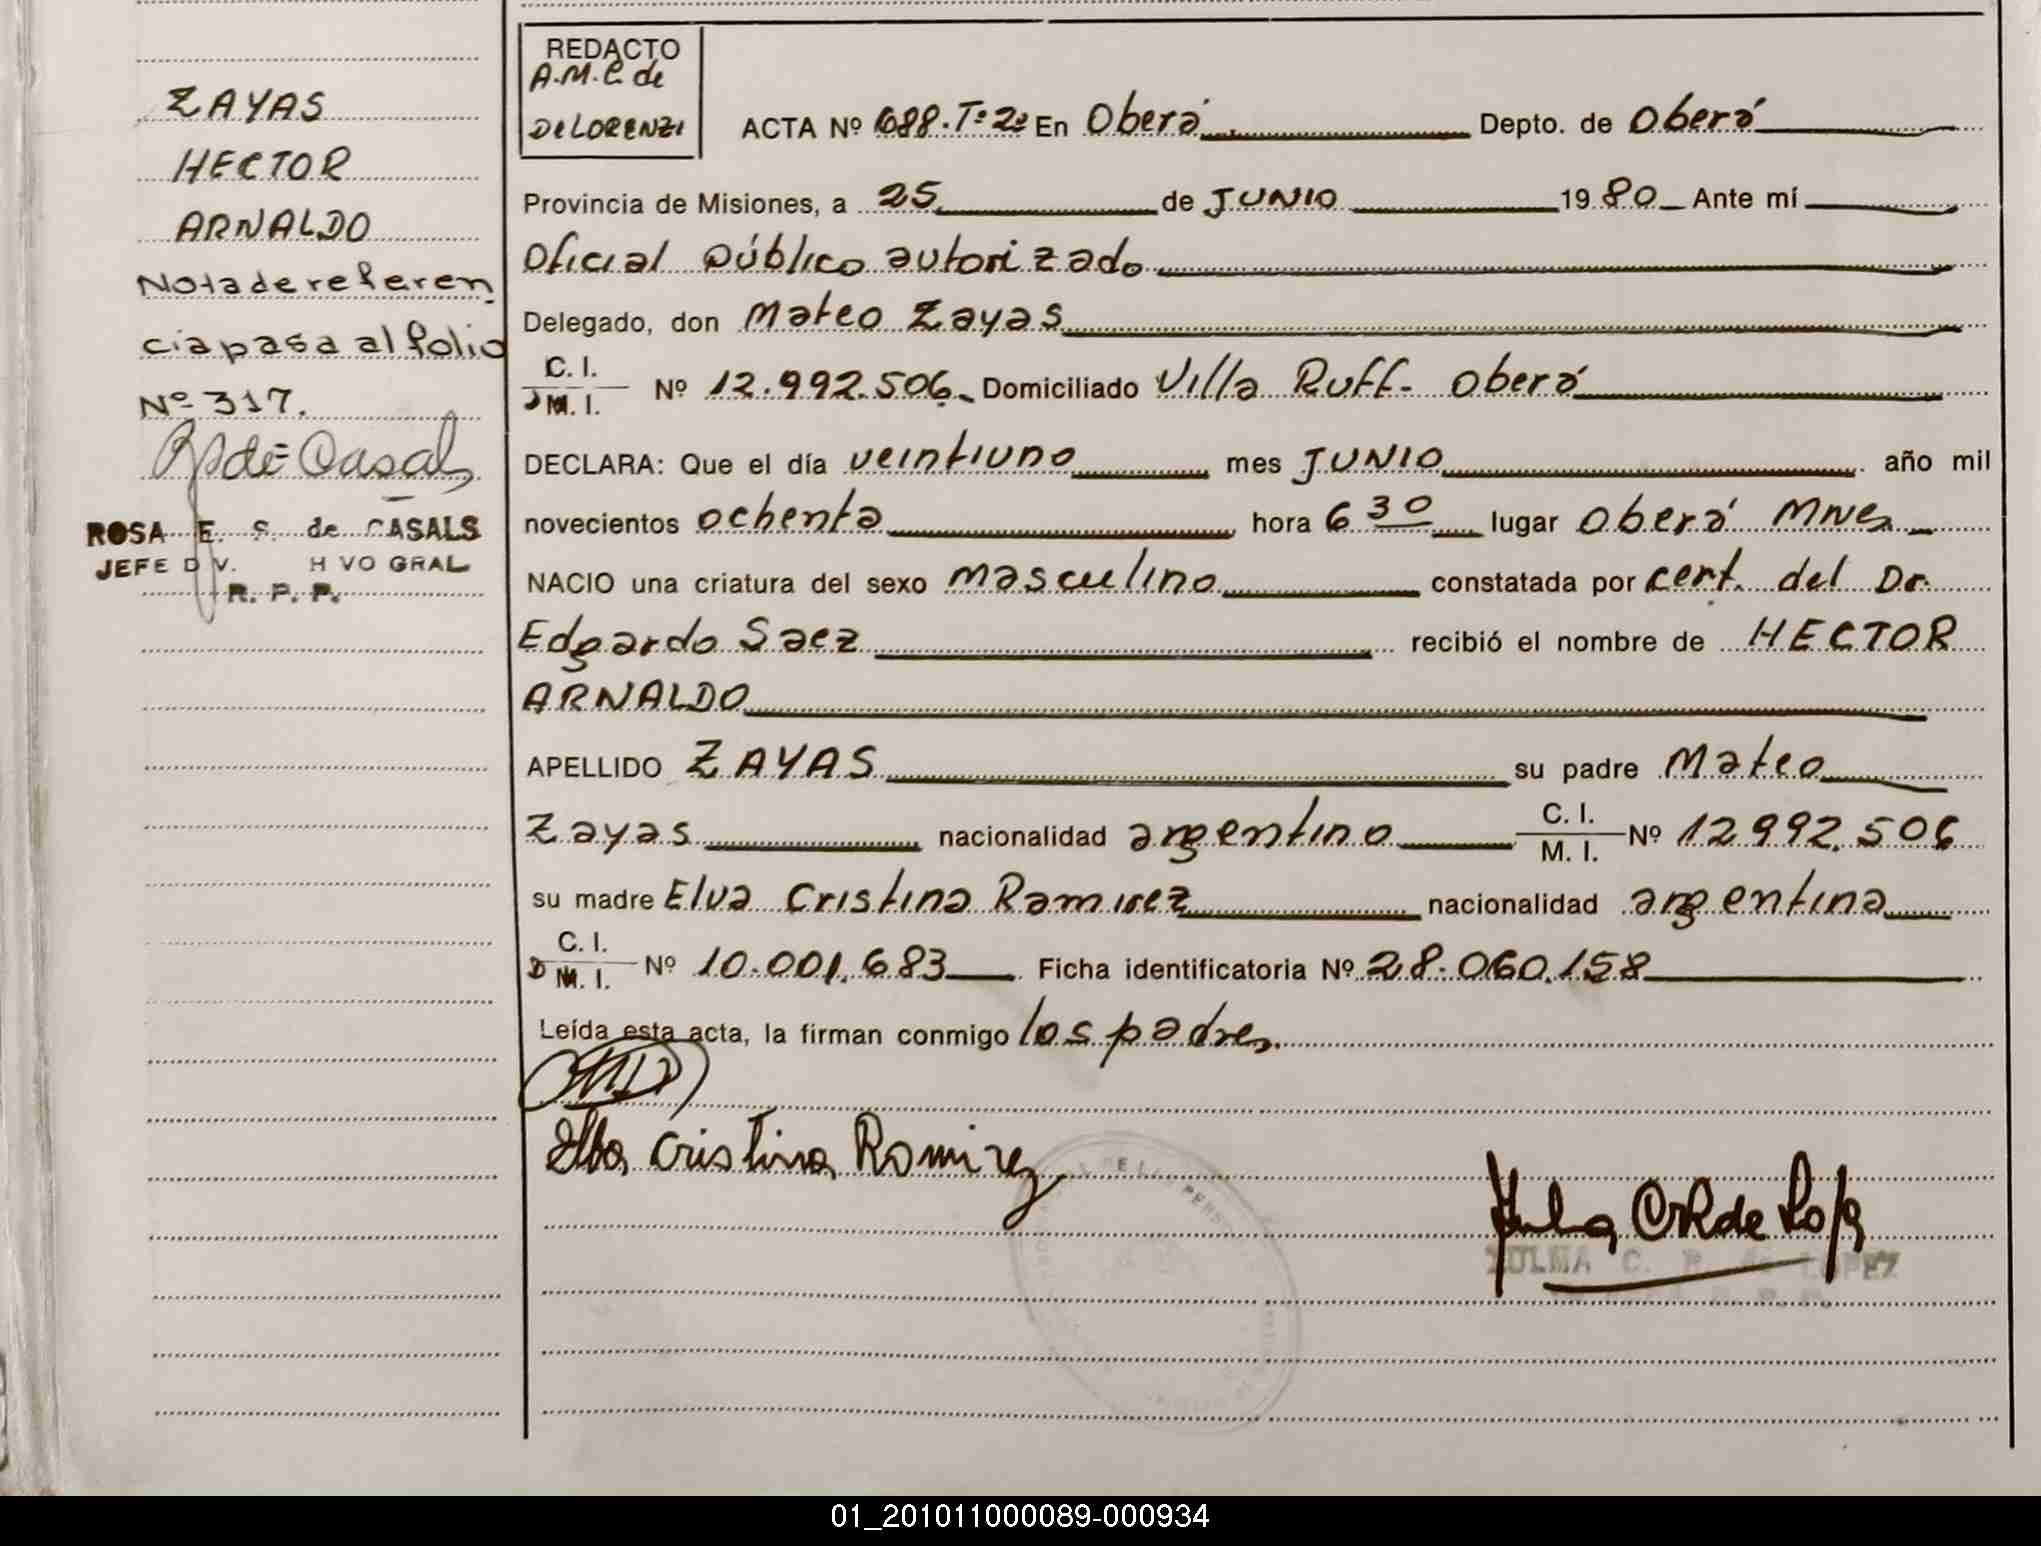 ZAYAS
HECTOR
ARNALDO
Nota de referen
cia pasa al folio
Nº 317.
de Casals
ROSA E. S. de CASALS
JEFE D V. H VO GRAL
R. P. P.
REDACTO
A.M.C. de
De LORENZI
ACTA Nº 688. Tº 2º En Oberá Depto. de Oberá
Provincia de Misiones, a 25 de JUNIO 1980 Ante mí
Oficial Público autorizado
Delegado, don Mateo Zayas
C. I.
D M. I. Nº 12.992.506 Domiciliado Villa Ruff - Oberá
DECLARA: Que el día veintiuno mes JUNIO año mil
novecientos ochenta hora 6 30 lugar Oberá Mnes
NACIO una criatura del sexo masculino constatada por cert. del Dr.
Edgardo Saez recibió el nombre de HECTOR
ARNALDO
APELLIDO ZAYAS su padre Mateo
Zayas nacionalidad argentino C. I. M. I. Nº 12.992.506
su madre Elva Cristina Ramirez nacionalidad argentina
C. I.
D M. I. Nº 10.001.683 Ficha identificatoria Nº 28.060.158
Leída esta acta, la firman conmigo los padres.
Elba Cristina Ramirez
ZULMA C. R. de LOPEZ
01_201011000089-000934